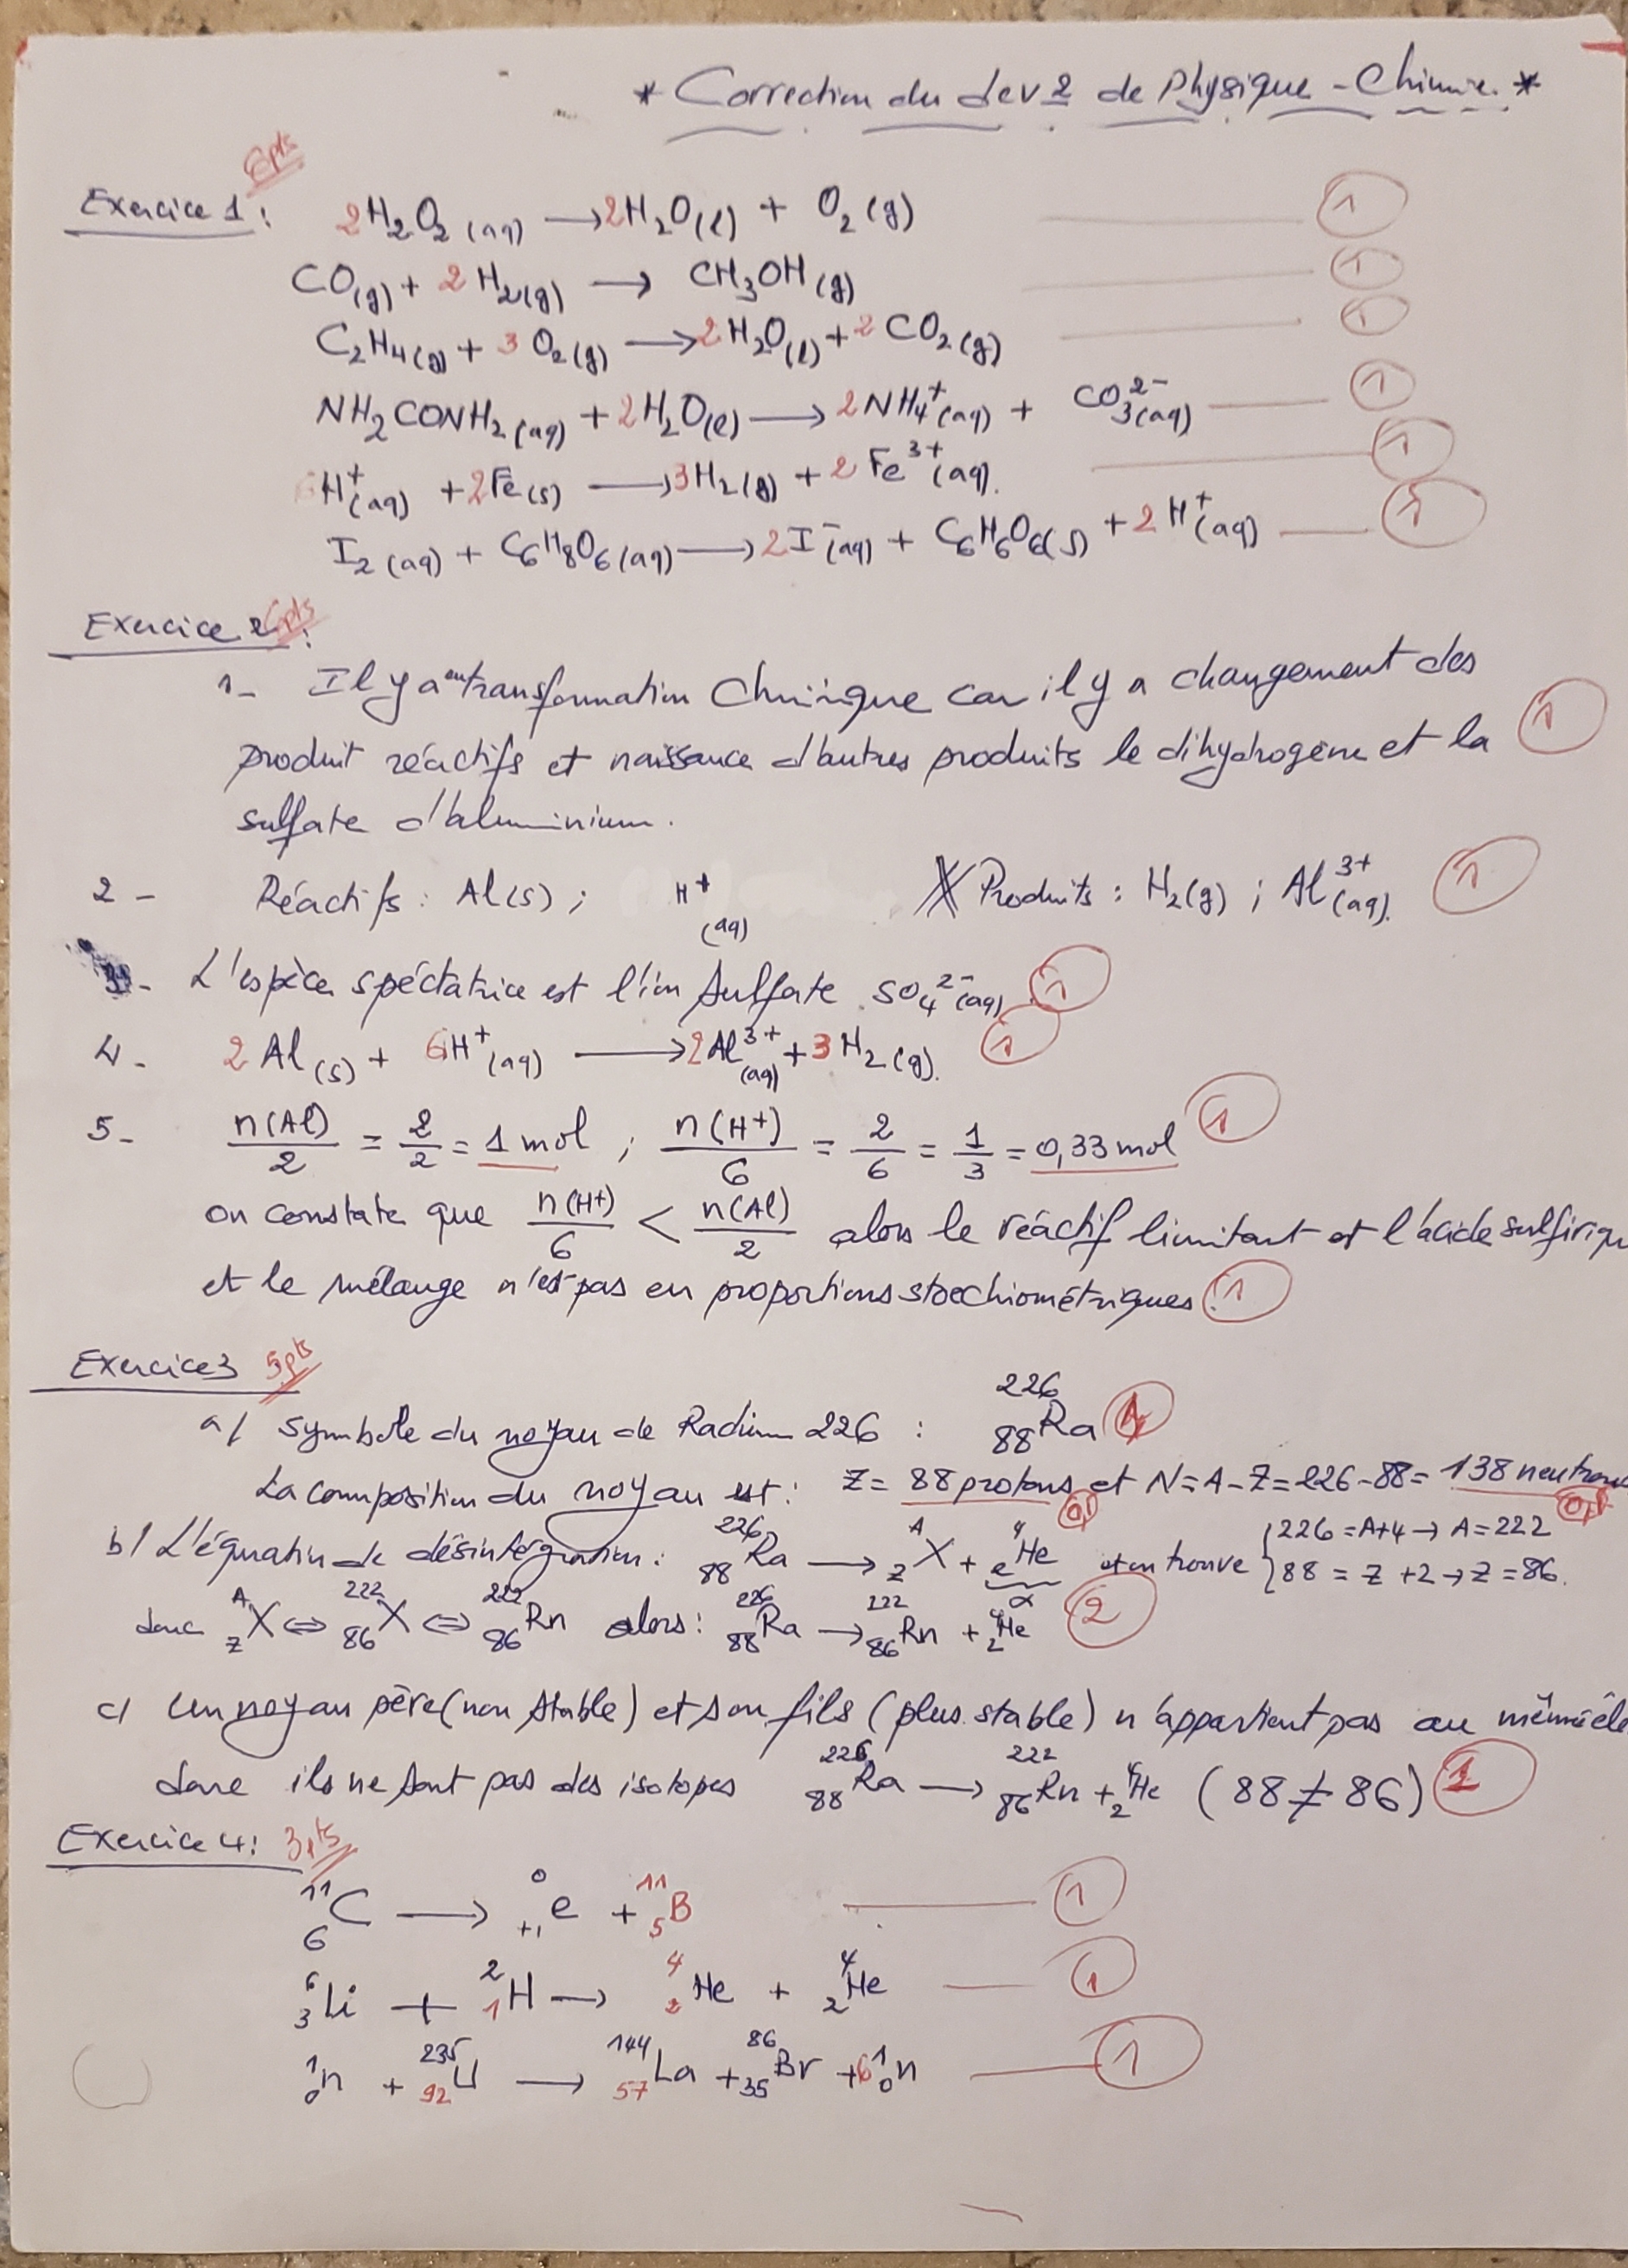 * Correction du dev 2 de Physique - Chimie. *
6pts
Exercice 1 : 2H₂O₂(aq) → 2H₂O(l) + O₂(g) 1
CO(g) + 2H₂(g) → CH₃OH(g) 1
C₂H₄(g) + 3O₂(g) → 2H₂O(l) + 2CO₂(g) 1
NH₂CONH₂(aq) + 2H₂O(l) → 2NH₄⁺(aq) + CO₃²⁻(aq) 1
6H⁺(aq) + 2Fe(s) → 3H₂(g) + 2Fe³⁺(aq). 1
I₂(aq) + C₆H₈O₆(aq) → 2I⁻(aq) + C₆H₆O₆(s) + 2H⁺(aq) 1
Exercice 2 : 6pts
1- Il y a eu transformation Chimique car il y a changement des
produit réactifs et naissance d'autres produits le dihydrogène et la 1
sulfate d'aluminium.
2 - Réactifs : Al(s) ; H⁺(aq) Produits : H₂(g) ; Al³⁺(aq). 1
3- L'espèce spéctatrice est l'ion sulfate SO₄²⁻(aq). 1
4- 2Al(s) + 6H⁺(aq) → 2Al³⁺(aq) + 3H₂(g). 1
5- n(Al)/2 = 2/2 = 1 mol ; n(H⁺)/6 = 2/6 = 1/3 = 0,33 mol 1
on constate que n(H⁺)/6 < n(Al)/2 alors le réactif limitant et l'acide sulfiriqu
et le mélange n'est pas en proportions stoechiométriques. 1
Exercice 3 5pts
a/ symbole du noyau de Radium 226 : ²²⁶₈₈Ra 1
La composition du noyau est : Z = 88 protons et N = A - Z = 226 - 88 = 138 neutrons
b/ L'équation de désintégration : ²²⁶₈₈Ra → ᴬ_Z X + ⁴₂He α et on trouve { 226 = A+4 → A = 222
88 = Z + 2 → Z = 86.
donc ᴬ_Z X ⇔ ²²²₈₆X ⇔ ²²²₈₆Rn alors : ²²⁶₈₈Ra → ²²²₈₆Rn + ⁴₂He 2
c/ Un noyau père (non stable) et son fils (plus stable) n'appartient pas au même élé
donc ils ne sont pas des isotopes ²²⁶₈₈Ra → ²²²₈₆Rn + ⁴₂He (88 ≠ 86) 1
Exercice 4 : 3pts
¹¹₆C → ⁰₊₁e + ¹¹₅B 1
⁶₃Li + ²₁H → ⁴₂He + ⁴₂He 1
¹₀n + ²³⁵₉₂U → ¹⁴⁴₅₇La + ⁸⁶₃₅Br + 6¹₀n 1